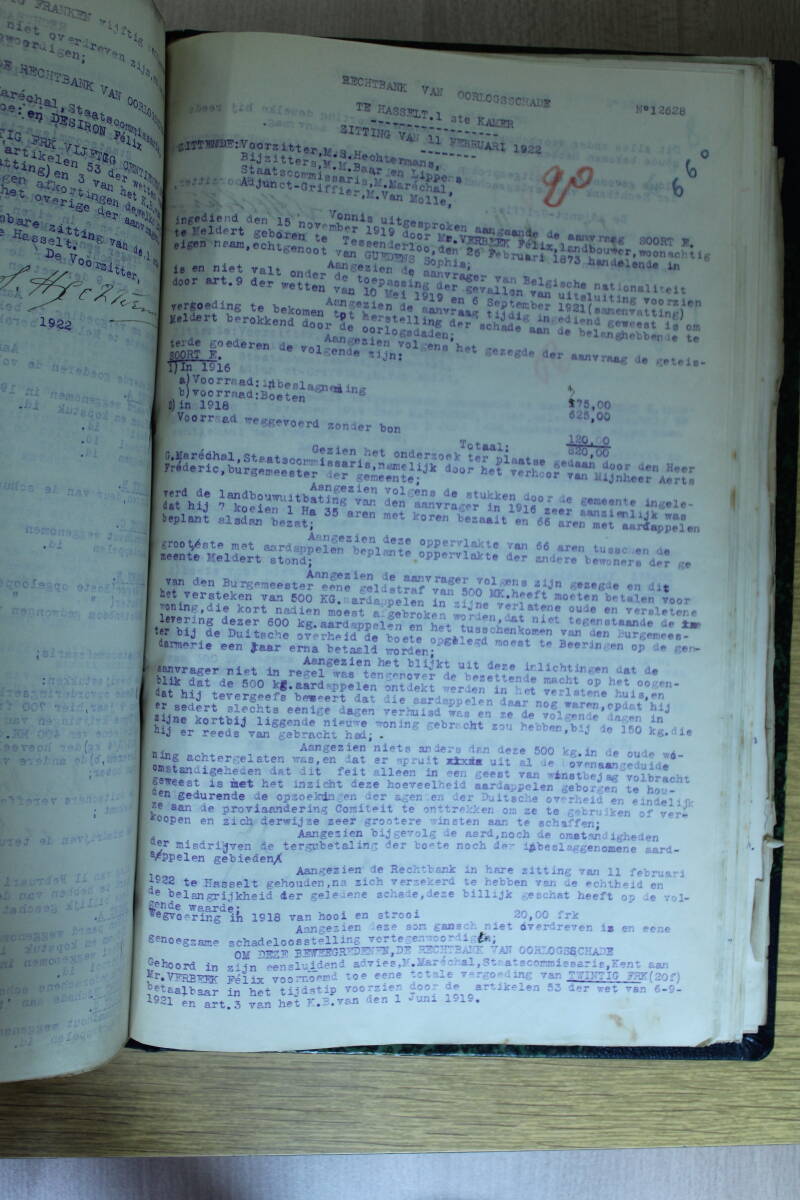 FRANKEN vijftig
niet overdreven zijn,
woordigen;
RECHTBANK VAN OORLOGS
Maréchal,Staatscommissaris
en DESIRON Félix
FRK VIJFTIG CENTIEMEN
artikelen 53 der wetten
en 3 van het K.B.
gen afkortingen dewelke
het overige der aanvraag
bare zitting van de
Hasselt.
De Voorzitter,
1922
RECHTBANK VAN OORLOGSSCHADE
N°12628
TE HASSELT.1 ste KAMER
ZITTING VAN 11 FEBRUARI 1922
66°
90
ZITTENDE:Voorzitter,M.S.Hechtermans,
Bijzitters,M.M.Baar en Lippers
Staatscommissaris,M.Maréchal,
Adjunct-Griffier,M.Van Molle,
Vonnis uitgesproken aangaande de aanvraag SOORT E.
ingediend den 15 november 1919 door Mr.VERBEEK Félix,landbouwer,woonachtig
te Meldert geboren te Tessenderloo,den 26 Februari 1873 handelende in
eigen naam,echtgenoot van GUEDENS Sophia;
Aangezien de aanvrager van Belgische nationaliteit
is en niet valt onder de toepassing der gevallen van uitsluiting voorzien
door art.9 der wetten van 10 Mei 1919 en 6 September 1921(samenvatting)
Aangezien de aanvraag tijdig ingediend geweest is om
vergoeding te bekomen tot herstelling der schade aan de belanghebbende te
Meldert berokkend door de oorlogsdaden;
Aangezien volgens het gezegde der aanvraag de geteis-
terde goederen de volgende zijn:
SOORT E.
1)In 1916
a)Voorraad:inbeslagneming
b)voorraad:Boeten 175,00
2)in 1918 625,00
Voorraad weggevoerd zonder bon 120,00
Totaal: 820,00
Gezien het onderzoek ter plaatse gedaan door den Heer
G.Maréchal,Staatscommissaris,namelijk door het verhoor van Mijnheer Aerts
Fréderic,burgemeester der gemeente;
Aangezien volgens de stukken door de gemeente ingele-
verd de landbouwuitbating van den aanvrager in 1916 zeer aanzienlijk was
dat hij 7 koeien 1 Ha 35 aren met koren bezaait en 66 aren met aardappelen
beplant alsdan bezat;
Aangezien deze oppervlakte van 66 aren tusschen de
grootéste met aardappelen beplante oppervlakte der andere bewoners der ge
meente Meldert stond;
Aangezien de aanvrager volgens zijn gezegde en dit
van den Burgemeester eene geldstraf van 500 MK.heeft moeten betalen voor
het versteken van 500 KG.aardappelen in zijne verlatene oude en versletene
woning,die kort nadien moest afgebroken worden,dat niet tegenstaande de
levering dezer 600 kg.aardappelen en het tusschenkomen van den Burgemees-
ter bij de Duitsche overheid de boete opgelegd moest te Beeringen op de gen-
darmerie een jaar erna betaald worden;
Aangezien het blijkt uit deze inlichtingen dat de
aanvrager niet in regel was tengenover de bezettende macht op het oogen-
blik dat de 500 kg.aardappelen ontdekt werden in het verlatene huis,en
dat hij tevergeefs beweert dat die aardappelen daar nog waren,opdat hij
er sedert slechts eenige dagen verhuisd was en ze de volgende dagen in
zijne kortbij liggende nieuwe woning gebracht zou hebben,bij de 150 kg.die
hij er reeds van gebracht had;.
Aangezien niets anders dan deze 500 kg.in de oude wo-
ning achtergelaten was,en dat er spruit uit al de bovenaangeduide
omstandigheden dat dit feit alleen in een geest van winstbejag volbracht
geweest is met het inzicht deze hoeveelheid aardappelen geborgen te hou-
den gedurende de opzoekingen der agenten der Duitsche overheid en eindelijk
ze aan de proviaandering Comiteit te onttrekken om ze te gebruiken of ver-
koopen en zich derwijze zeer grootere winsten aan te schaffen;
Aangezien bijgevolg de aard,noch de omstandigheden
der misdrijven de tergubetaling der boete noch der inbeslaggenomene aard-
appelen gebieden
Aangezien de Rechtbank in hare zitting van 11 februari
1922 te Hasselt gehouden,na zich verzekerd te hebben van de echtheid en
de belangrijkheid der geledene schade,deze billijk geschat heeft op de vol-
gende waarde:
Wegvoering in 1918 van hooi en strooi 20,00 frk
Aangezien deze som gansch niet overdreven is en eene
genoegzame schadeloosstelling vertegenwoordigt;
OM DEZE BEWEEGREDENEN,DE RECHTBANK VAN OORLOGSSCHADE
Gehoord in zijn eensluidend advies,M.Maréchal,Staatscommissaris,Kent aan
Mr.VERBEEK Félix voornoemd toe eene totale vergoeding van TWINTIG FRK(20f)
betaalbaar in het tijdstip voorzien door de artikelen 53 der wet van 6-9-
1921 en art.3 van het K.B.van den 1 Juni 1919.